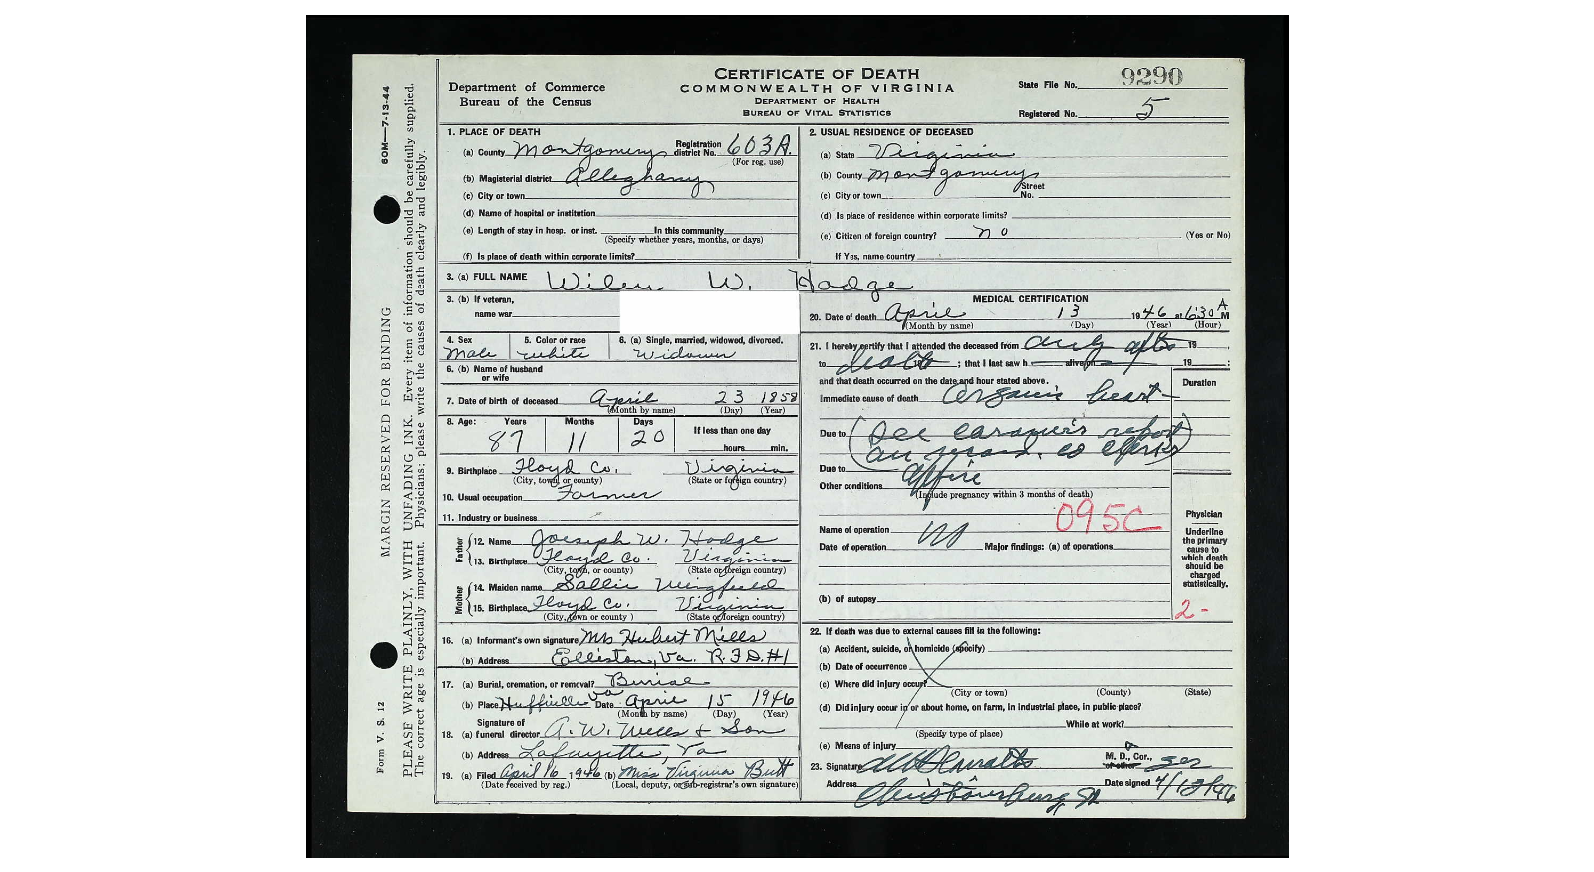 CERTIFICATE OF DEATH
COMMONWEALTH OF VIRGINIA
DEPARTMENT OF HEALTH
BUREAU OF VITAL STATISTICS
Department of Commerce
Bureau of the Census
State File No. 9290
Registered No. 5
60M—7-13-44
MARGIN RESERVED FOR BINDING
Form V. S. 12
PLEASE WRITE PLAINLY, WITH UNFADING INK. Every item of information should be carefully supplied.
The correct age is especially important. Physicians: please write the causes of death clearly and legibly.
1. PLACE OF DEATH
(a) County Montgomery Registration district No. 603A.
(For reg. use)
(b) Magisterial district Alleghany
(c) City or town
(d) Name of hospital or institution
(e) Length of stay in hosp. or inst. In this community
(Specify whether years, months, or days)
(f) Is place of death within corporate limits?
2. USUAL RESIDENCE OF DECEASED
(a) State Virginia
(b) County Montgomery
(c) City or town Street No.
(d) Is place of residence within corporate limits?
(e) Citizen of foreign country? no (Yes or No)
If Yes, name country
3. (a) FULL NAME Wiley W. Hodge
3. (b) If veteran,
name war
4. Sex 5. Color or race 6. (a) Single, married, widowed, divorced.
Male white widower
6. (b) Name of husband
or wife
7. Date of birth of deceased April 23 1858
(Month by name) (Day) (Year)
8. Age: Years Months Days If less than one day
87 11 20 hours min.
9. Birthplace Floyd Co. Virginia
(City, town, or county) (State or foreign country)
10. Usual occupation Farmer
11. Industry or business
Father
12. Name Joesiph W. Hodge
13. Birthplace Floyd Co. Virginia
(City, town, or county) (State or foreign country)
Mother
14. Maiden name Sallie Wingfield
15. Birthplace Floyd Co. Virginia
(City, town or county) (State or foreign country)
16. (a) Informant's own signature Mrs Hubert Mills
(b) Address Elliston, Va. R.F.D.#1
17. (a) Burial, cremation, or removal? Burial
(b) Place Huffville Va Date April 15 1946
(Month by name) (Day) (Year)
Signature of
18. (a) funeral director A. W. Wells & Son
(b) Address Lafayette, Va
19. (a) Filed April 16 1946 (b) Miss Virginia Butt
(Date received by reg.) (Local, deputy, or sub-registrar's own signature)
MEDICAL CERTIFICATION
20. Date of death April 13 1946 at 6:30 A M
(Month by name) (Day) (Year) (Hour)
21. I hereby certify that I attended the deceased from only after 19
to death 19 ; that I last saw h alive on 19 ;
and that death occurred on the date and hour stated above.
Duration
Immediate cause of death Organic heart
Due to (See coroner's report
on record. co Clerks)
Due to office
Other conditions
(Include pregnancy within 3 months of death)
095C
Name of operation no
Date of operation Major findings: (a) of operations
(b) of autopsy
Physician
Underline
the primary
cause to
which death
should be
charged
statistically.
2-
22. If death was due to external causes fill in the following:
(a) Accident, suicide, or homicide (specify)
(b) Date of occurrence
(c) Where did injury occur?
(City or town) (County) (State)
(d) Did injury occur in or about home, on farm, in industrial place, in public place?
While at work?
(Specify type of place)
(e) Means of injury
23. Signature M. D., Cor., or other
Address Christiansburg, Date signed 4/13/46